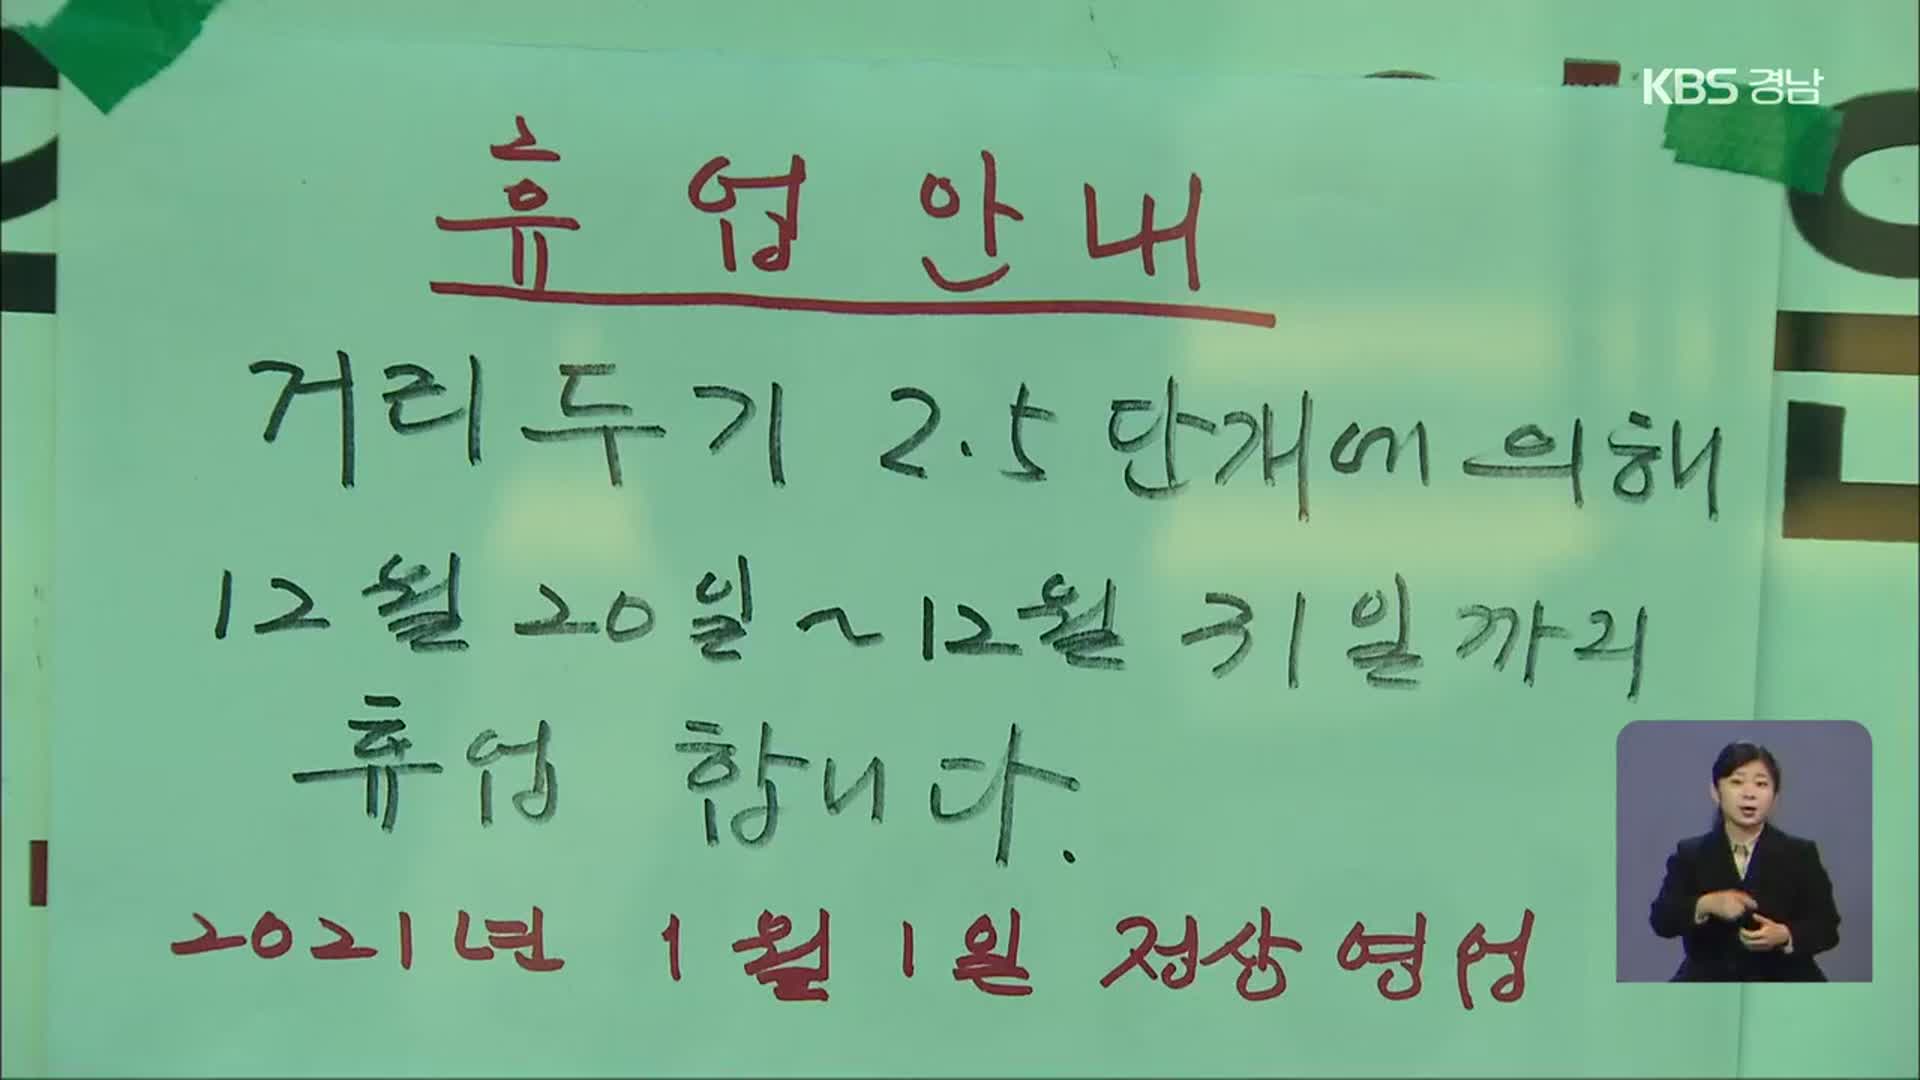 KBS 경남
휴업안내
거리두기 2.5단개에 의해
12월 20일~12월 31일까지
휴업 합니다.
2021년 1월 1일 정상영업